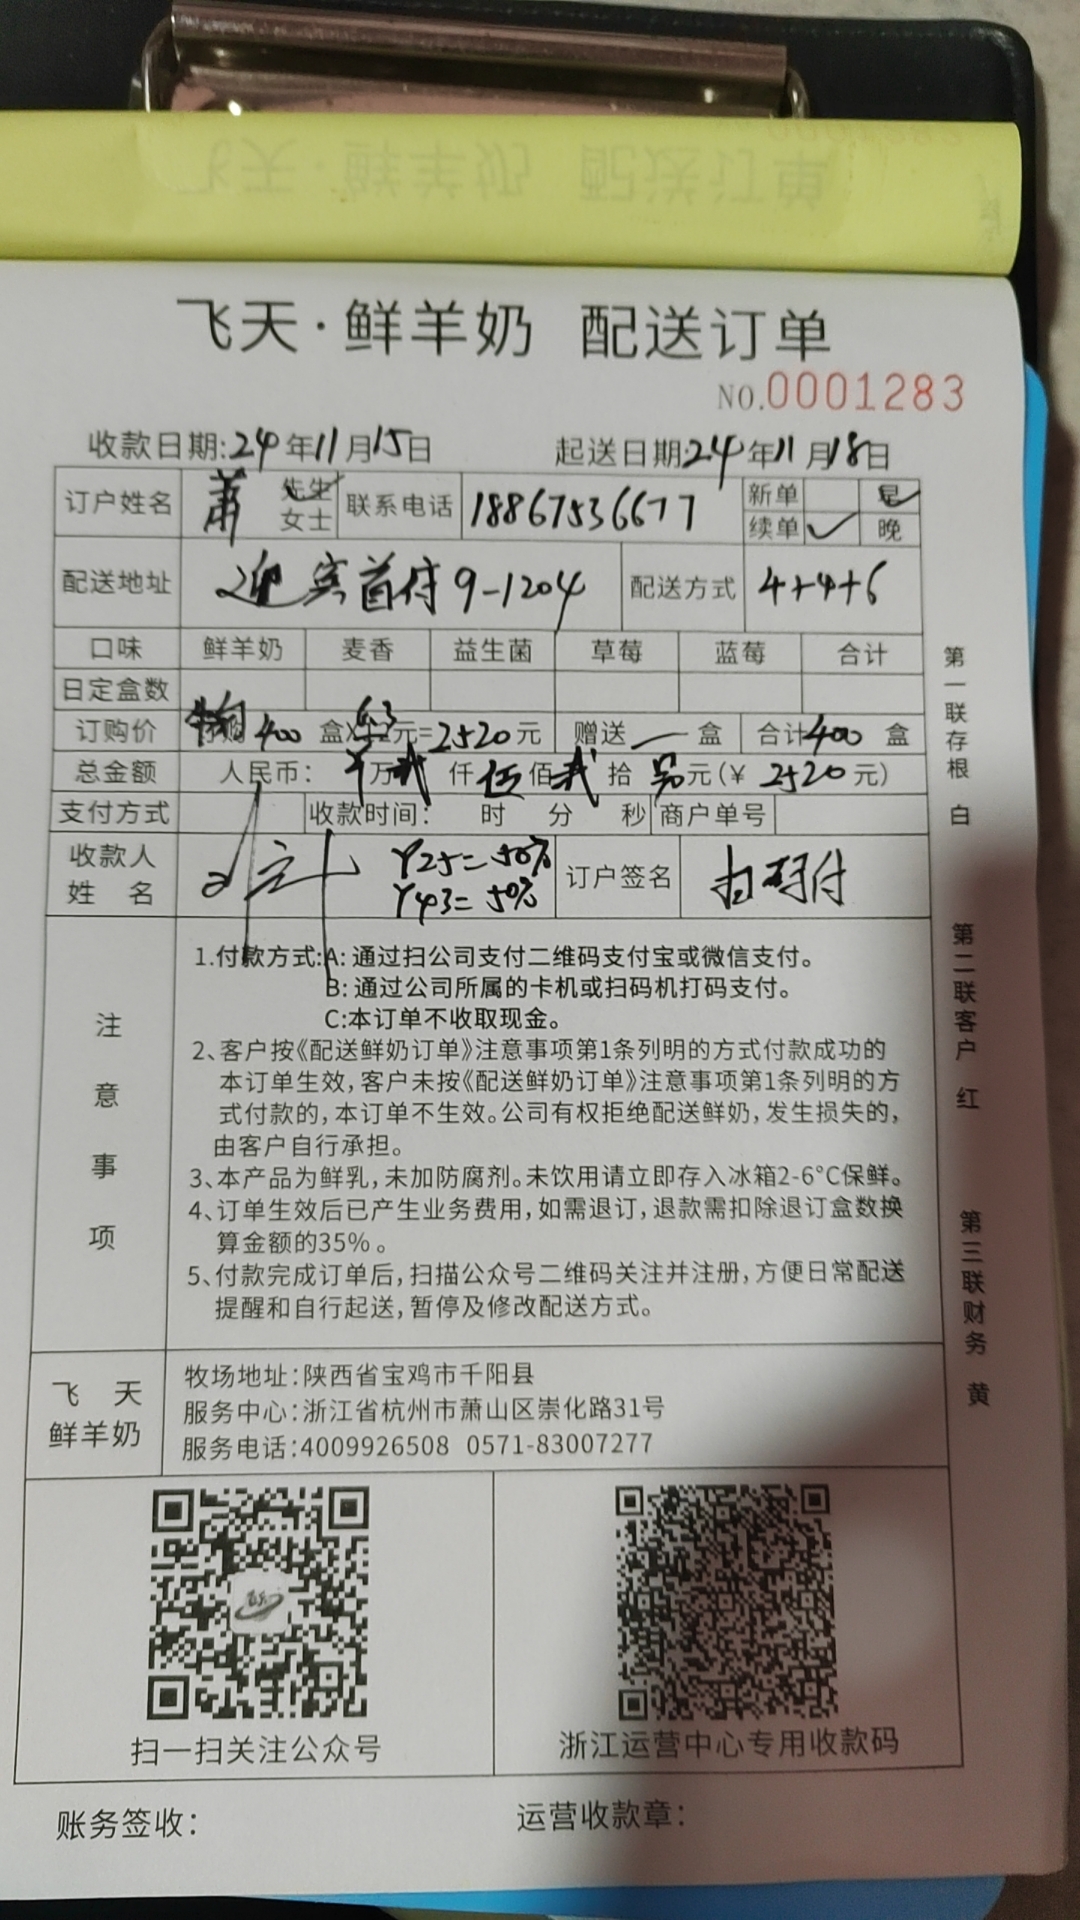 飞天·鲜羊奶 配送订单
NO.0001283
收款日期:24年11月15日 起送日期:24年11月18日
订户姓名 萧 先生 女士 联系电话 18867536677 新单 早 续单 ✓ 晚
配送地址 迎宾首付9-1204 配送方式 4+4+6
口味 鲜羊奶 麦香 益生菌 草莓 蓝莓 合计
日定盒数
订购价 订购400盒X6.3元=2520元 赠送 — 盒 合计400盒
总金额 人民币: 万贰仟伍佰贰拾 元(¥ 2520元)
支付方式 收款时间: 时 分 秒 商户单号
收款人姓名 Y25=50% 订户签名 扫码付
Y43=50%
注意事项
1.付款方式:A: 通过扫公司支付二维码支付宝或微信支付。
B: 通过公司所属的卡机或扫码机打码支付。
C:本订单不收取现金。
2、客户按《配送鲜奶订单》注意事项第1条列明的方式付款成功的
本订单生效,客户未按《配送鲜奶订单》注意事项第1条列明的方
式付款的,本订单不生效。公司有权拒绝配送鲜奶,发生损失的,
由客户自行承担。
3、本产品为鲜乳,未加防腐剂。未饮用请立即存入冰箱2-6°C保鲜。
4、订单生效后已产生业务费用,如需退订,退款需扣除退订盒数换
算金额的35%。
5、付款完成订单后,扫描公众号二维码关注并注册,方便日常配送
提醒和自行起送,暂停及修改配送方式。
飞天鲜羊奶
牧场地址:陕西省宝鸡市千阳县
服务中心:浙江省杭州市萧山区崇化路31号
服务电话:4009926508 0571-83007277
扫一扫关注公众号 浙江运营中心专用收款码
账务签收: 运营收款章:
第一联存根 白
第二联客户 红
第三联财务 黄